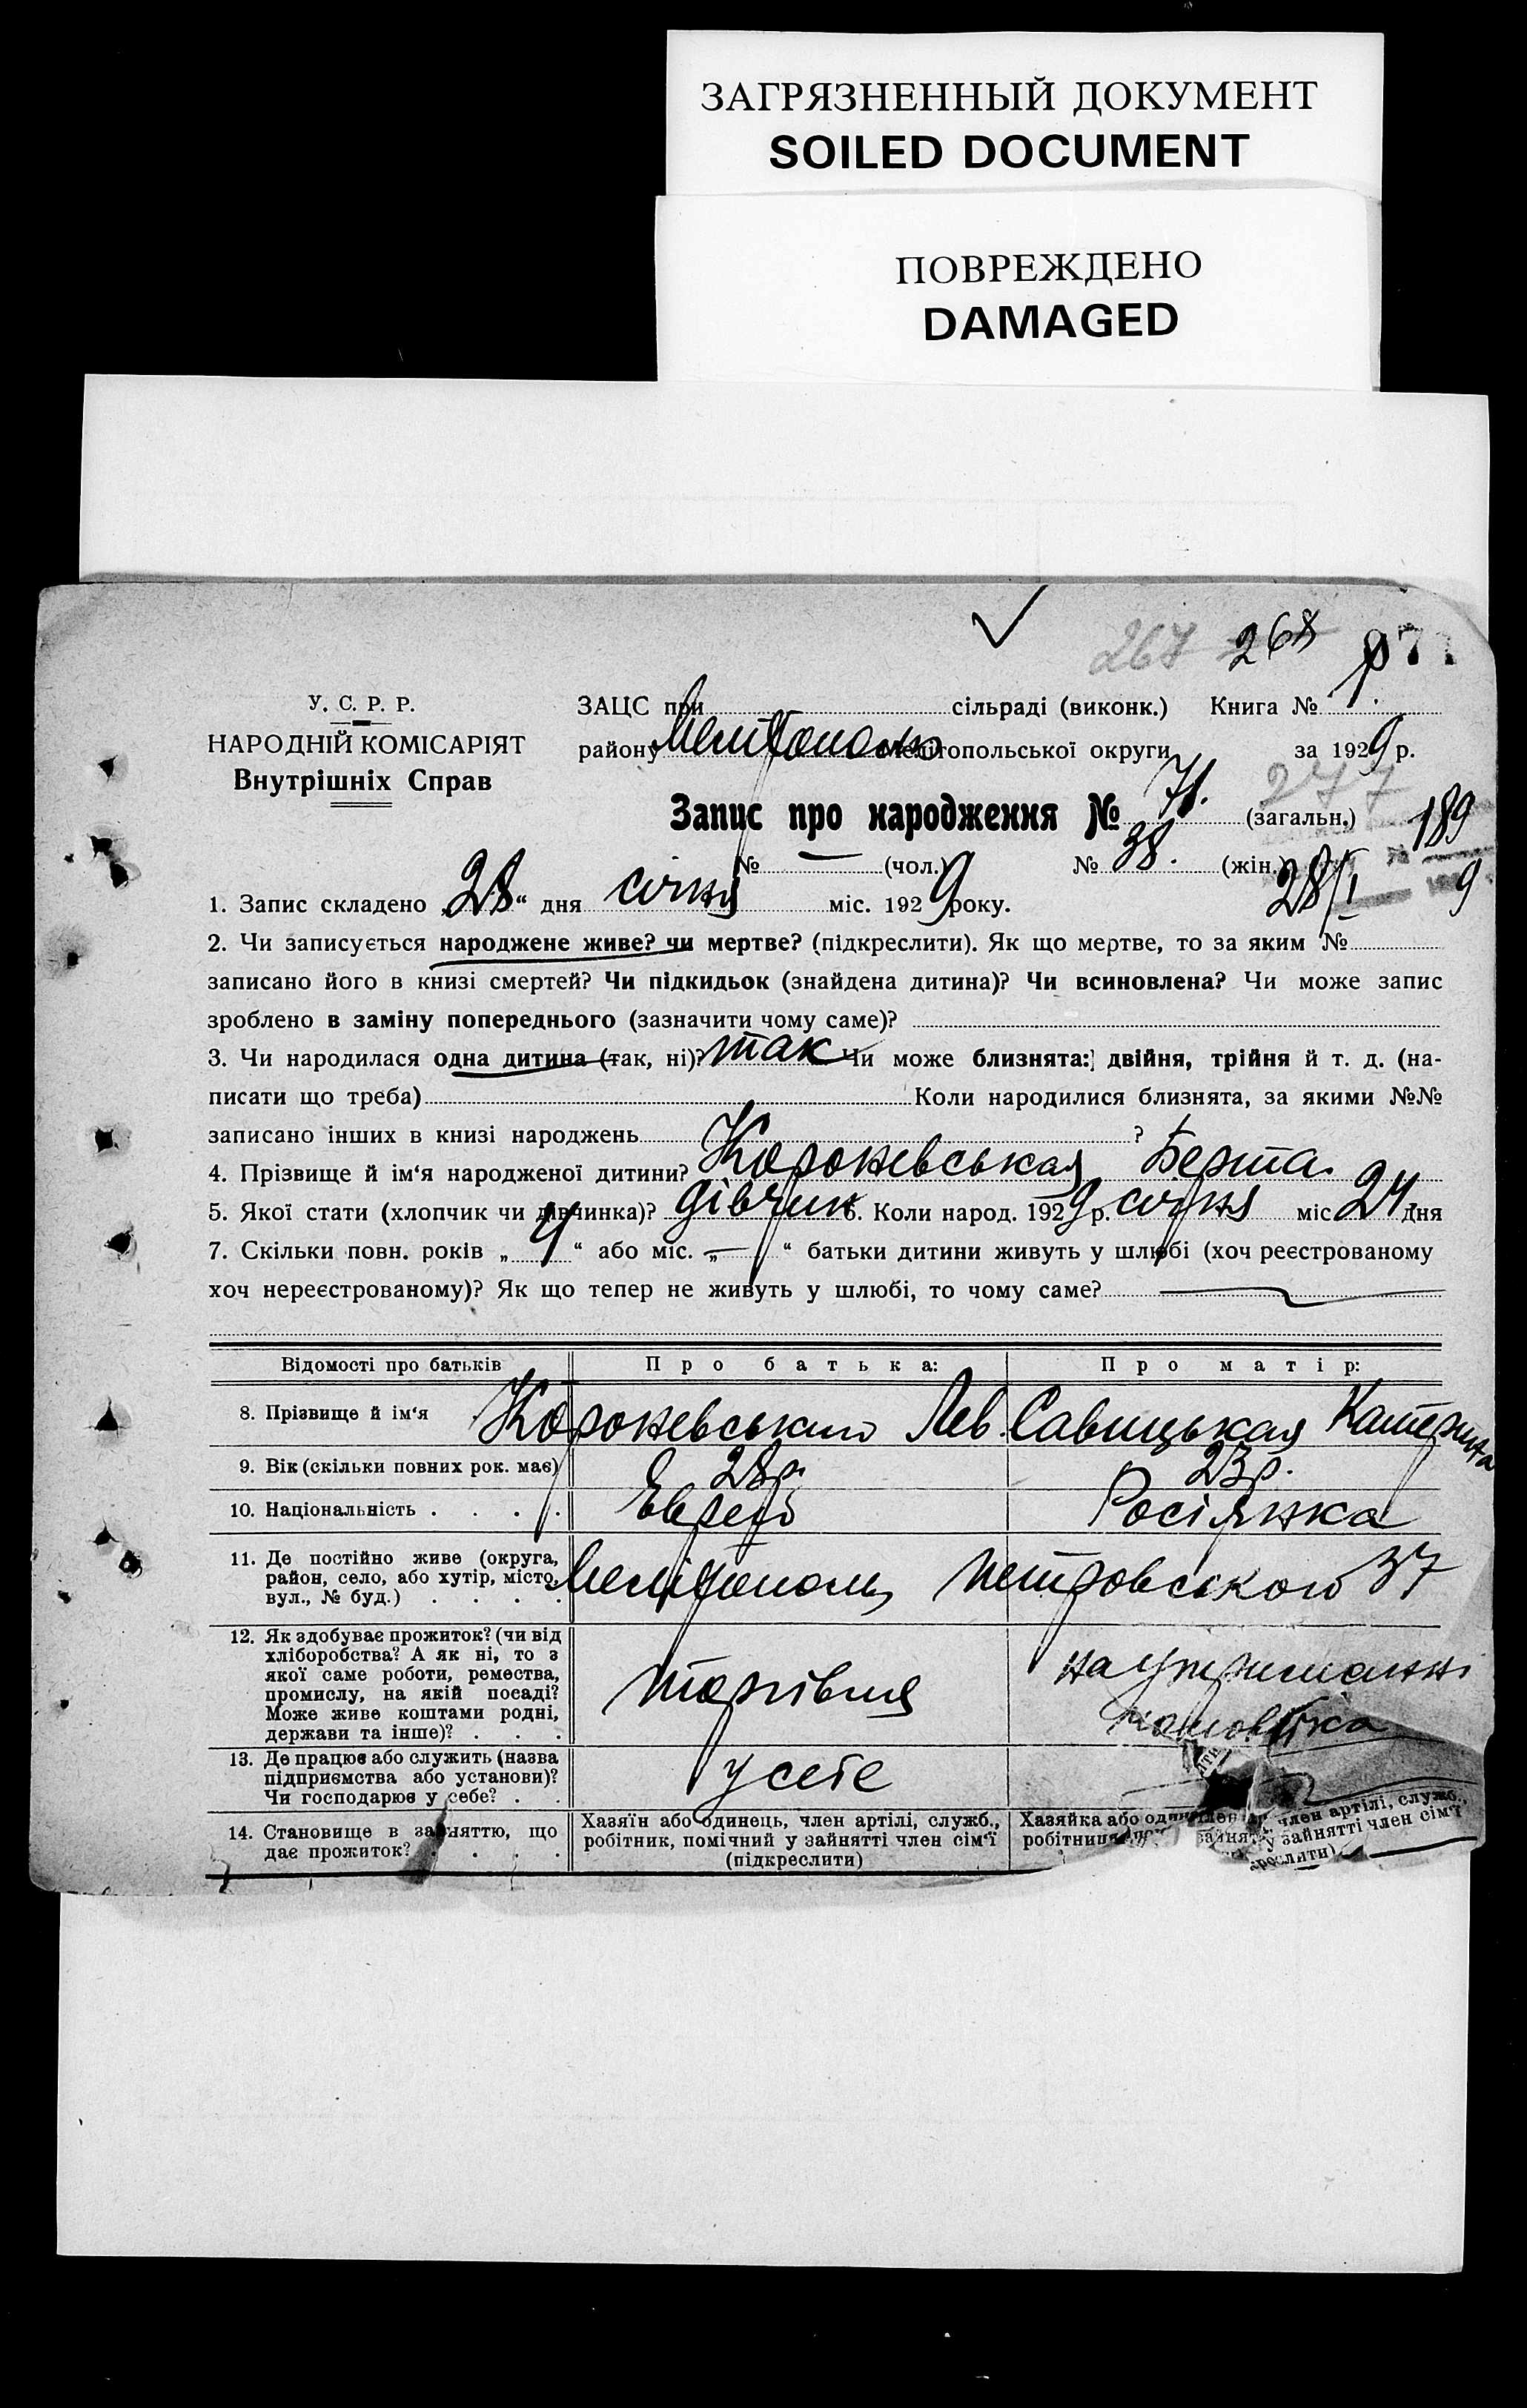 ЗАГРЯЗНЕННЫЙ ДОКУМЕНТ
SOILED DOCUMENT
ПОВРЕЖДЕНО
DAMAGED
267 268
У. С. Р. Р.
НАРОДНІЙ КОМІСАРІЯТ
Внутрішніх Справ
ЗАЦС при сільраді (виконк.) Книга № 1.
району Мелітополь Мелітопольської округи за 1929 р.
277
Запис про народження № 71. (загальн.) 189
№ — (чол.) № 38. (жін.) 28/I 9
1. Запис складено „28“ дня січня міс. 1929 року.
2. Чи записується народжене живе? чи мертве? (підкреслити). Як що мертве, то за яким №
записано його в книзі смертей? Чи підкидьок (знайдена дитина)? Чи всиновлена? Чи може запис
зроблено в заміну попереднього (зазначити чому саме)?
3. Чи народилася одна дитина (так, ні)? так Чи може близнята: двійня, трійня й т. д. (на-
писати що треба) Коли народилися близнята, за якими №№
записано інших в книзі народжень ?
4. Прізвище й ім‘я народженої дитини? Короневськая Берта.
5. Якої стати (хлопчик чи дівчинка)? дівчин 6. Коли народ. 1929 р. січня міс. 24 дня
7. Скільки повн. років „4“ або міс. „—“ батьки дитини живуть у шлюбі (хоч реєстрованому
хоч нереєстрованому)? Як що тепер не живуть у шлюбі, то чому саме? —
Відомості про батьків Про батька: Про матір:
8. Прізвище й ім‘я Короневський Лев. Савицькая Катерина
9. Вік (скільки повних рок. має) 28р. 23р.
10. Національність . . . . Еврей Росіянка
11. Де постійно живе (округа,
район, село, або хутір, місто,
вул., № буд.) . . . . Мелітополь Петровського 37
12. Як здобуває прожиток? (чи від
хліборобства? А як ні, то з
якої саме роботи, ремества,
промислу, на якій посаді?
Може живе коштами родні,
держави та інше)? . . . торгівля на утриманні
13. Де працює або служить (назва
підприємства або установи)?
Чи господарює у себе? . . у себе
14. Становище в занняттю, що
дає прожиток? . . .
Хазяїн або одинець, член артілі, служб.,
робітник, помічний у зайнятті член сім‘ї
(підкреслити)
Хазяйка або член артілі, служб.,
робітниця у зайнятті член сім‘ї